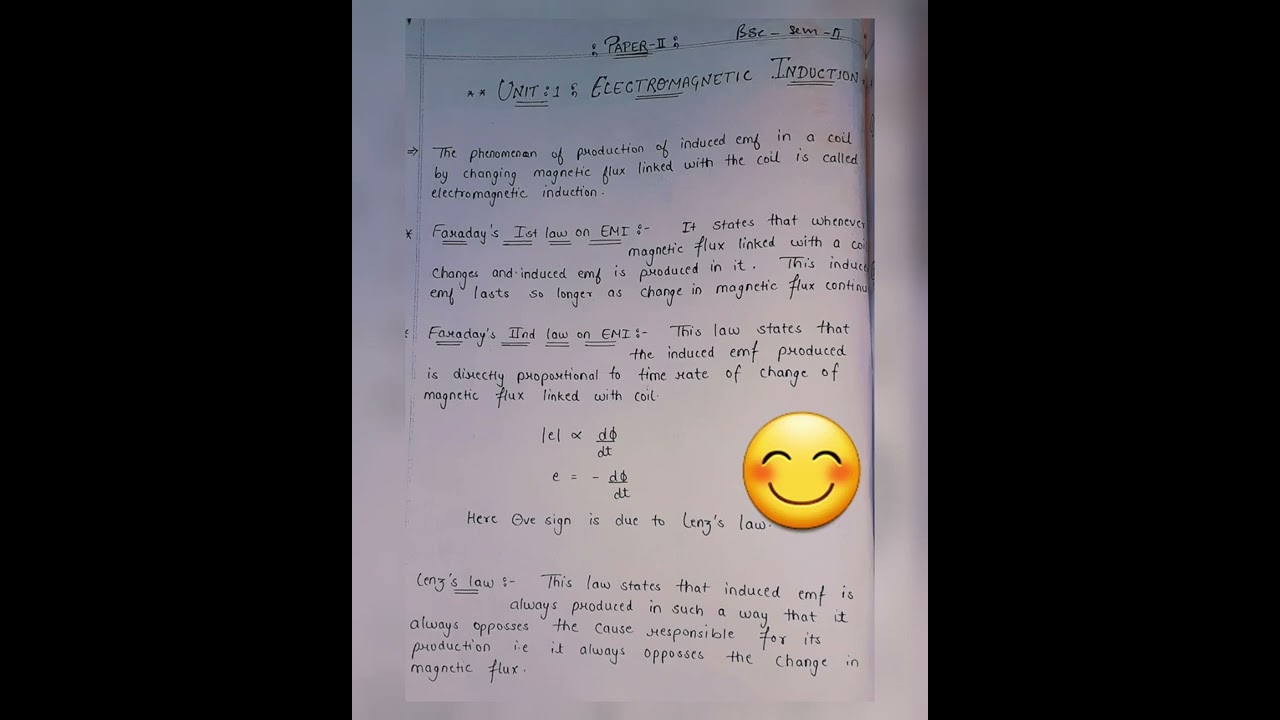 : PAPER-II :
BSc - Sem - II
** UNIT:1 : ELECTROMAGNETIC INDUCTION.
⇒ The phenomenan of production of induced emf in a coil
by changing magnetic flux linked with the coil is called
electromagnetic induction.
* Faraday's Ist law on EMI :- It states that whenever
magnetic flux linked with a coi
changes and induced emf is produced in it. This induce
emf lasts so longer as change in magnetic flux continu
Faraday's IInd law on EMI :- This law states that
the induced emf produced
is directly proportional to time rate of change of
magnetic flux linked with coil.
|e| ∝ dϕ/dt
e = - dϕ/dt
Here ⊖ve sign is due to Lenz's law.
Lenz's law :- This law states that induced emf is
always produced in such a way that it
always opposses the cause responsible for its
production i.e it always opposses the change in
magnetic flux.